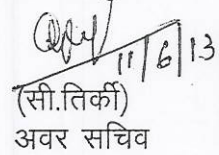 11/6/13
(सी.तिर्की)
अवर सचिव